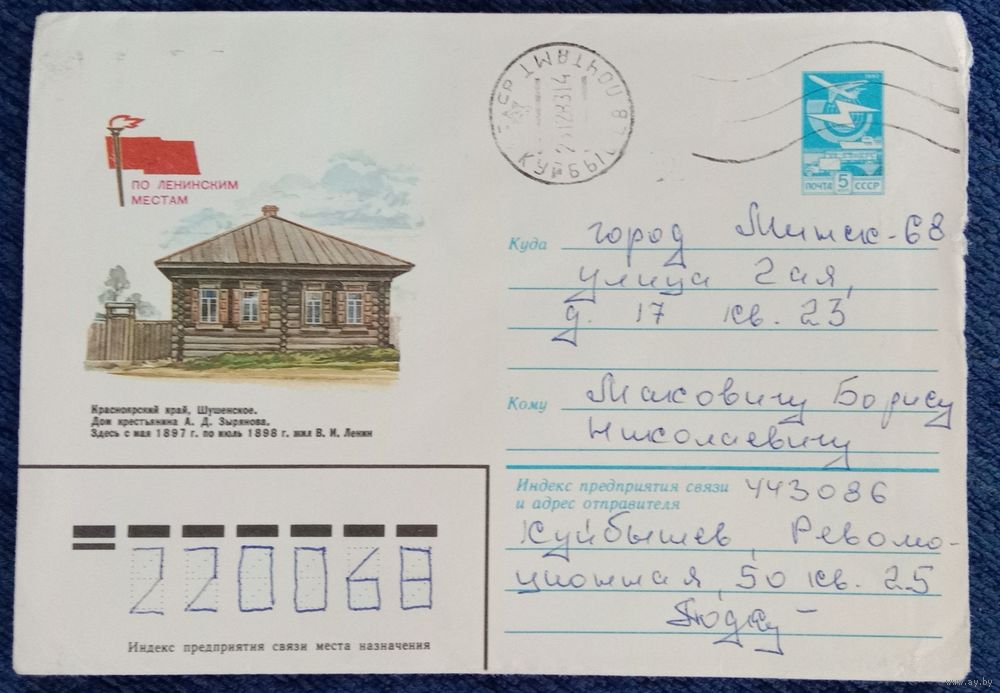 ПО ЛЕНИНСКИМ
МЕСТАМ
Красноярский край, Шушенское.
Дом крестьянина А. Д. Зырянова.
Здесь с мая 1897 г. по июль 1898 г. жил В. И. Ленин
ПОЧТАМТ
КУЙБЫШ
1982
ПОЧТА 5 СССР
Куда город Минск-68
улица 2ая,
д. 17 кв. 23
Кому Маковичу Борису
Николаевичу
Индекс предприятия связи 443086
и адрес отправителя
Куйбышев, Револю-
ционная, 50 кв. 25
220068
Индекс предприятия связи места назначения
www.ay.by